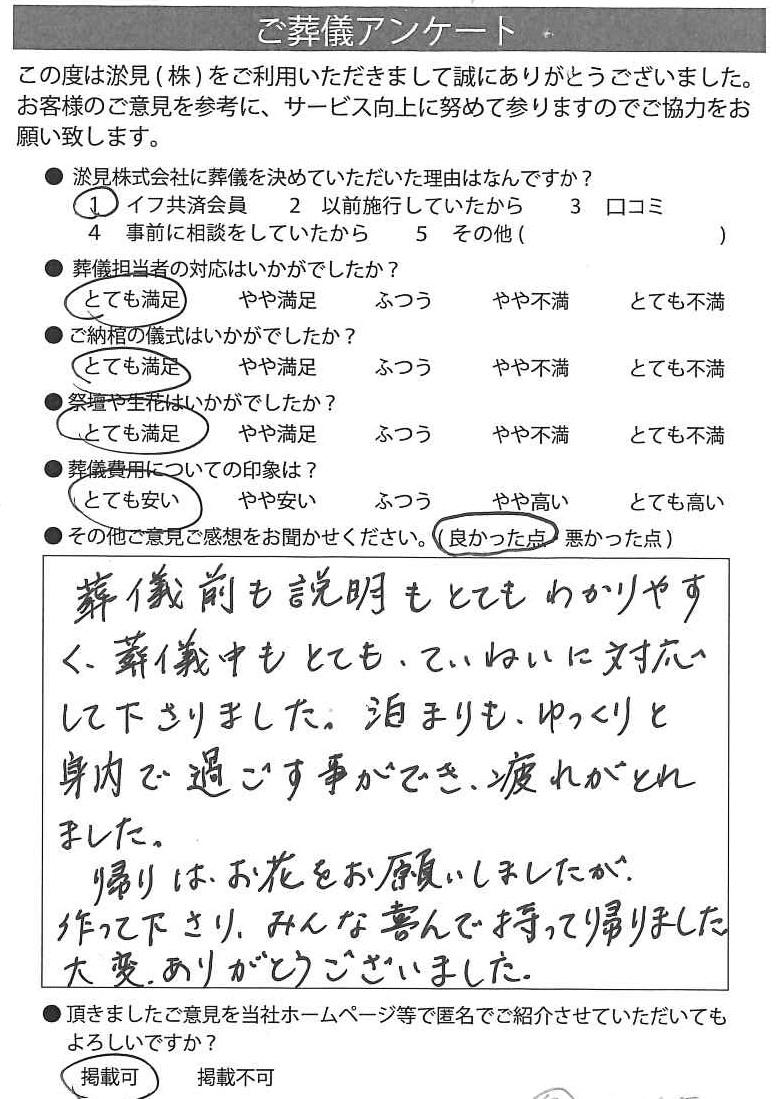 ご葬儀アンケート
この度は淤見(株)をご利用いただきまして誠にありがとうございました。
お客様のご意見を参考に、サービス向上に努めて参りますのでご協力をお
願い致します。
● 淤見株式会社に葬儀を決めていただいた理由はなんですか?
1 イフ共済会員 2 以前施行していたから 3 口コミ
4 事前に相談をしていたから 5 その他( )
● 葬儀担当者の対応はいかがでしたか?
とても満足 やや満足 ふつう やや不満 とても不満
● ご納棺の儀式はいかがでしたか?
とても満足 やや満足 ふつう やや不満 とても不満
● 祭壇や生花はいかがでしたか?
とても満足 やや満足 ふつう やや不満 とても不満
● 葬儀費用についての印象は?
とても安い やや安い ふつう やや高い とても高い
● その他ご意見ご感想をお聞かせください。(良かった点・悪かった点)
葬儀前も説明もとてもわかりやす
く、葬儀中もとても、ていねいに対応
して下さりました。泊まりも、ゆっくりと
身内で過ごす事ができ、疲れがとれ
ました。
帰りは、お花をお願いしましたが、
作って下さり、みんな喜んで持って帰りました。
大変、ありがとうございました。
● 頂きましたご意見を当社ホームページ等で匿名でご紹介させていただいても
よろしいですか?
掲載可 掲載不可